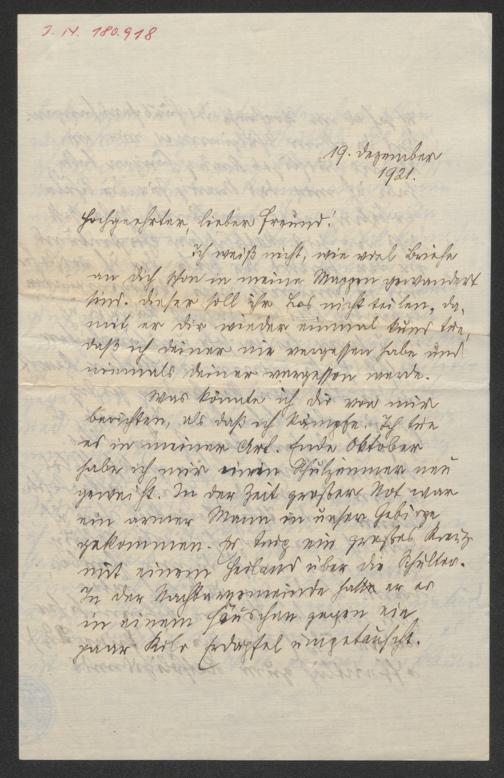 J. N. 180.918
19. Dezember
1921.
Hochgeehrter, lieber Freund!
Ich weiß nicht, wie viel Briefe
an Dich schon in meine Mappen gewandert
sind. Dieser soll ihr Los nicht teilen, da-
mit er Dir wieder einmal kund tue,
daß ich Deiner nie vergessen habe und
niemals Deiner vergessen werde.
Was könnte ich Dir von mir
berichten, als daß ich kämpfe. Ich tue
es in meiner Art. Ende Oktober
habe ich mir einen neu
geweiht. In der Zeit großer Not war
ein armer Mann in unser Gebirge
gekommen. Er trug ein großes Kreuz
mit einem Heiland über die Schulter.
In der Nachbargemeinde hatte er es
in einem Häuschen gegen ein
paar Kilo Erdäpfel umgetauscht.